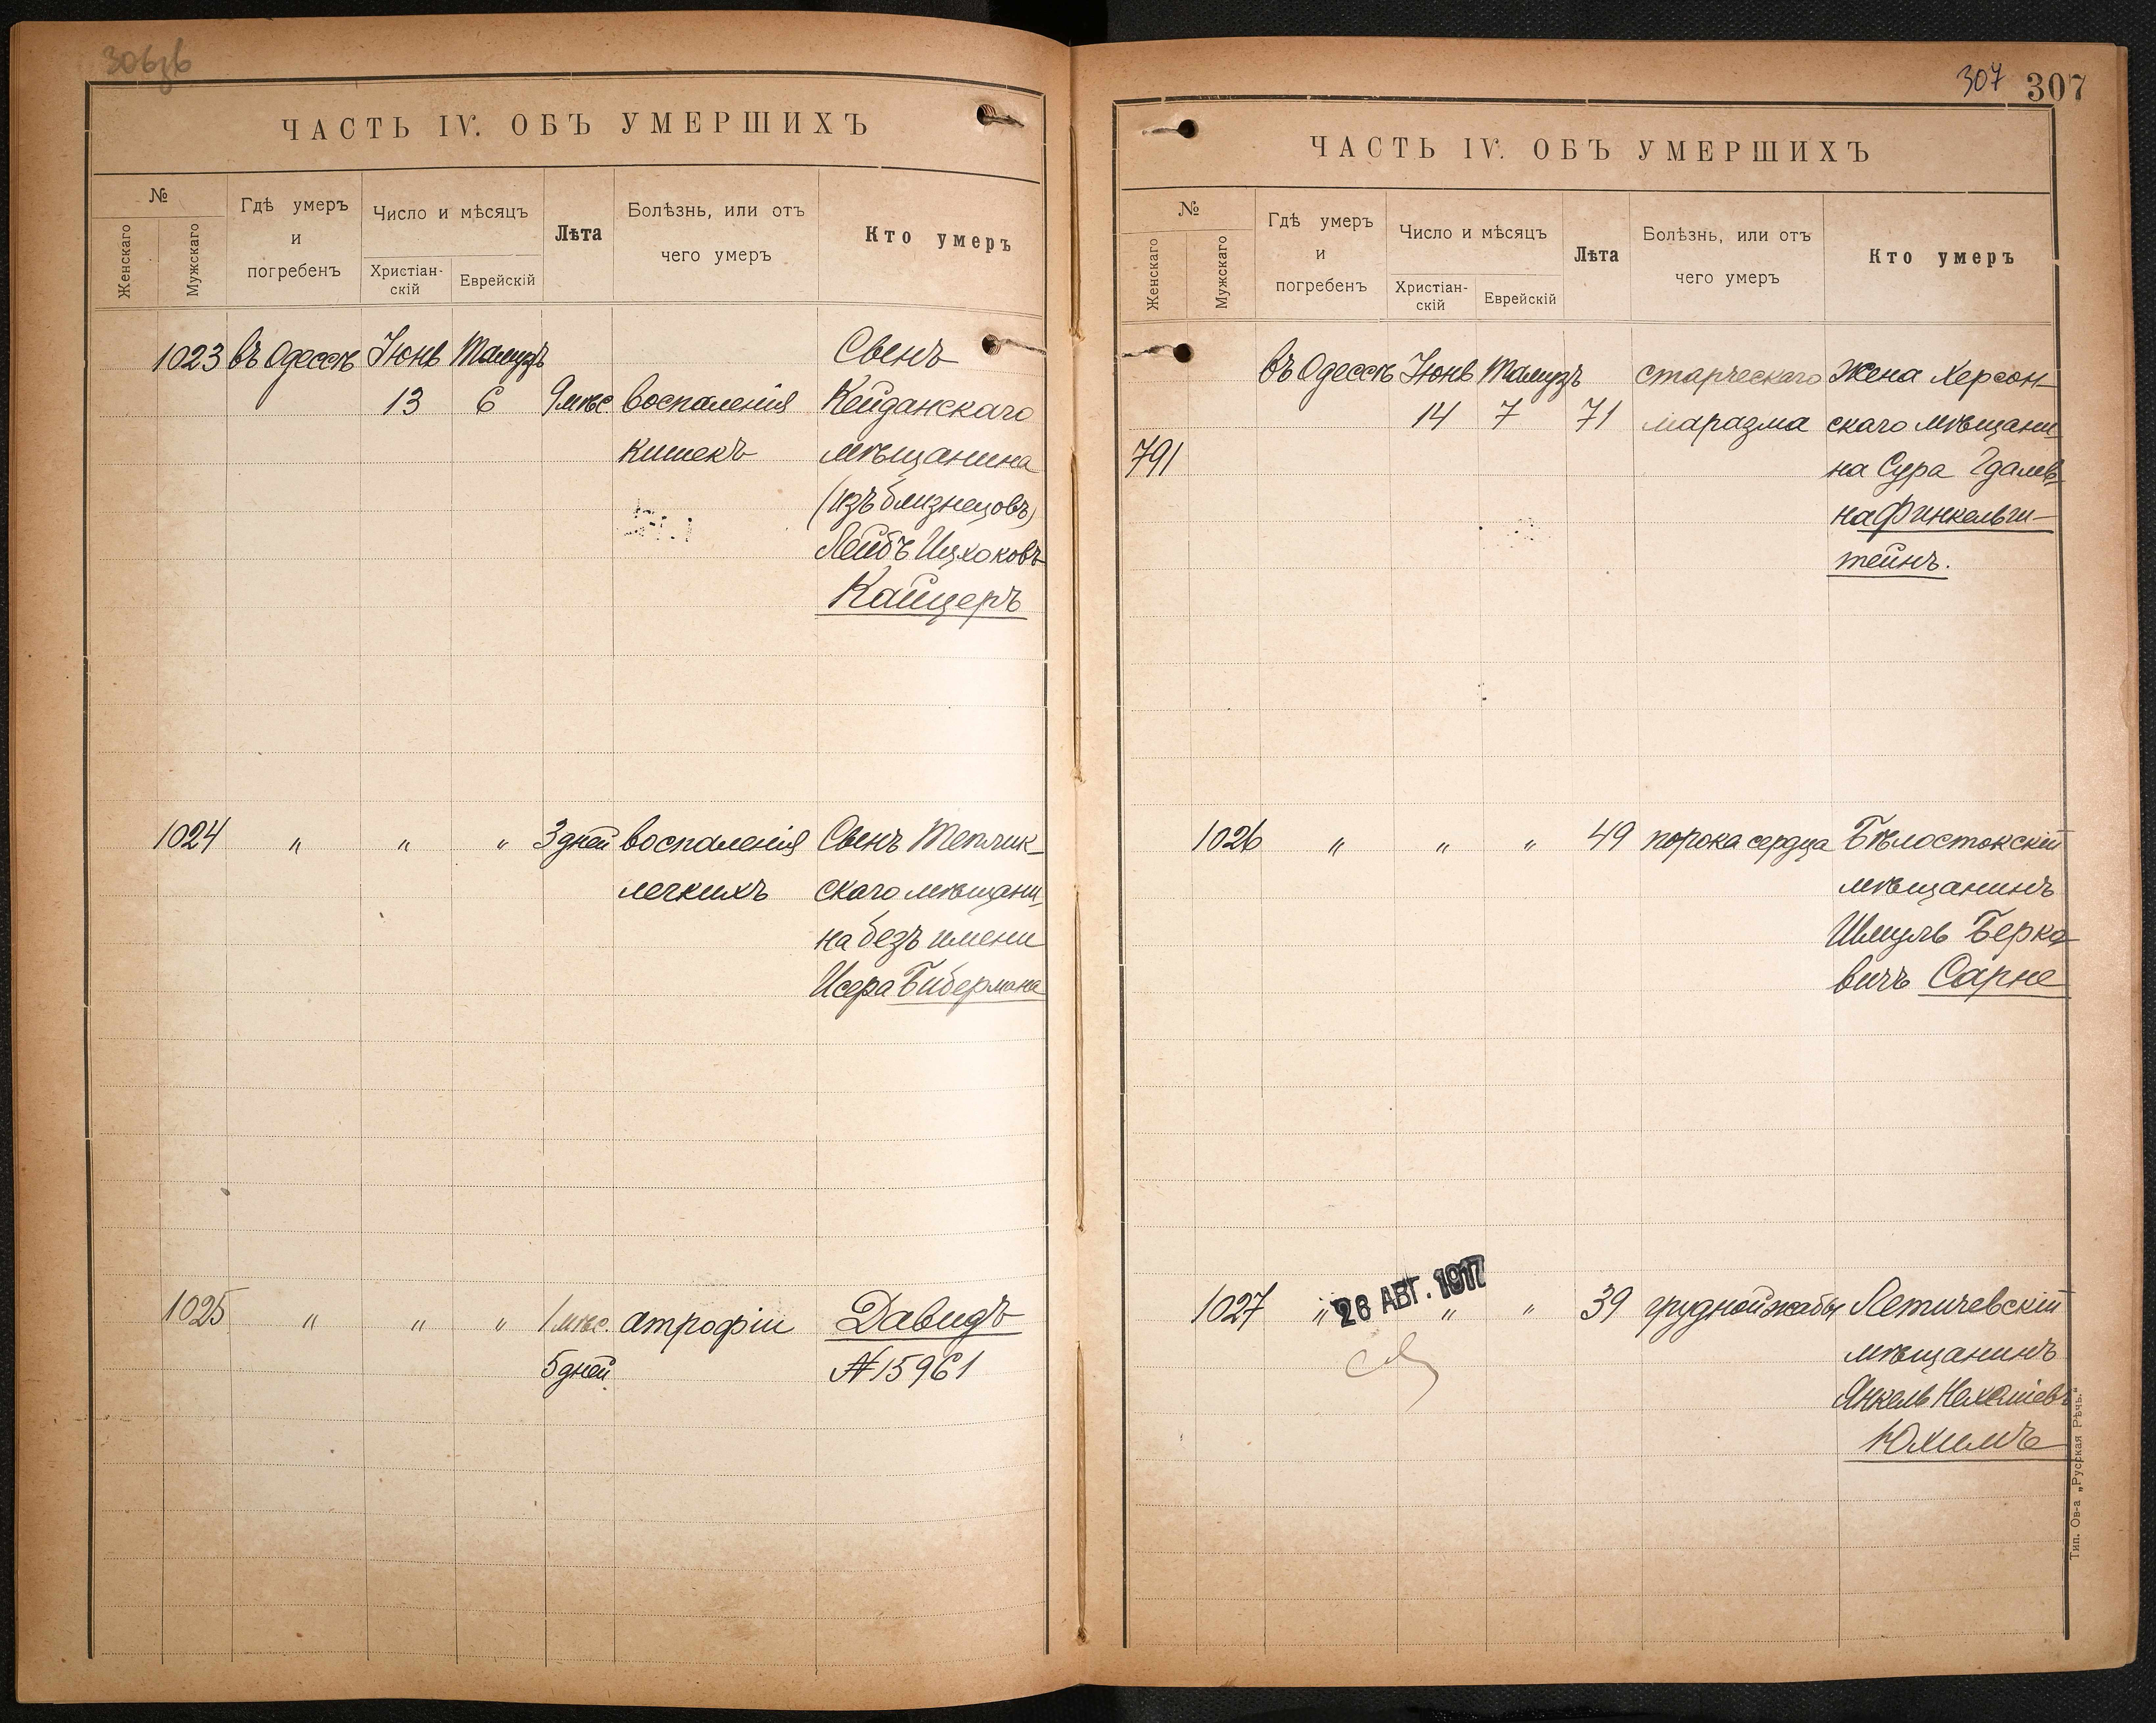 306зв
ЧАСТЬ IV. ОБЪ УМЕРШИХЪ
№
Женскаго
Мужскаго
Гдѣ умеръ
и
погребенъ
Число и мѣсяцъ
Христіан-
скій
Еврейскій
Лѣта
Болѣзнь, или отъ
чего умеръ
Кто умеръ
1023 въ Одессѣ Іюнь Тамузъ Свенъ
13 6 9 мѣс. воспаленія Кейданскаго
кишекъ мѣщанина
(изъ близнецовъ)
Лейбъ Ицхоковъ
Кайцеръ
1024 " " " 3 дней воспаленія Свенъ Теплик-
легкихъ скаго мѣщани-
на безъ имени
Исера Бибермана
1025 " " " 1 мѣс. атрофіи Давидъ
5 дней № 15961
307 307
ЧАСТЬ IV. ОБЪ УМЕРШИХЪ
№
Женскаго
Мужскаго
Гдѣ умеръ
и
погребенъ
Число и мѣсяцъ
Христіан-
скій
Еврейскій
Лѣта
Болѣзнь, или отъ
чего умеръ
Кто умеръ
въ Одессѣ Іюнь Тамузъ старческаго Жена Херсон-
14 7 71 маразма скаго мѣщани
791 на Сура Гдалев-
на Финкельш-
тейнъ.
1026 " " " 49 порока сердца Бѣлостокскій
мѣщанинъ
Шмуль Берко-
вичъ Сарне
26 АВГ. 1917
1027 " " " 39 грудной жабы Летичевскій
мѣщанинъ
Янкель Нехоміевъ
Юхимъ
Тип. Ов-а „Русская Рѣчь."